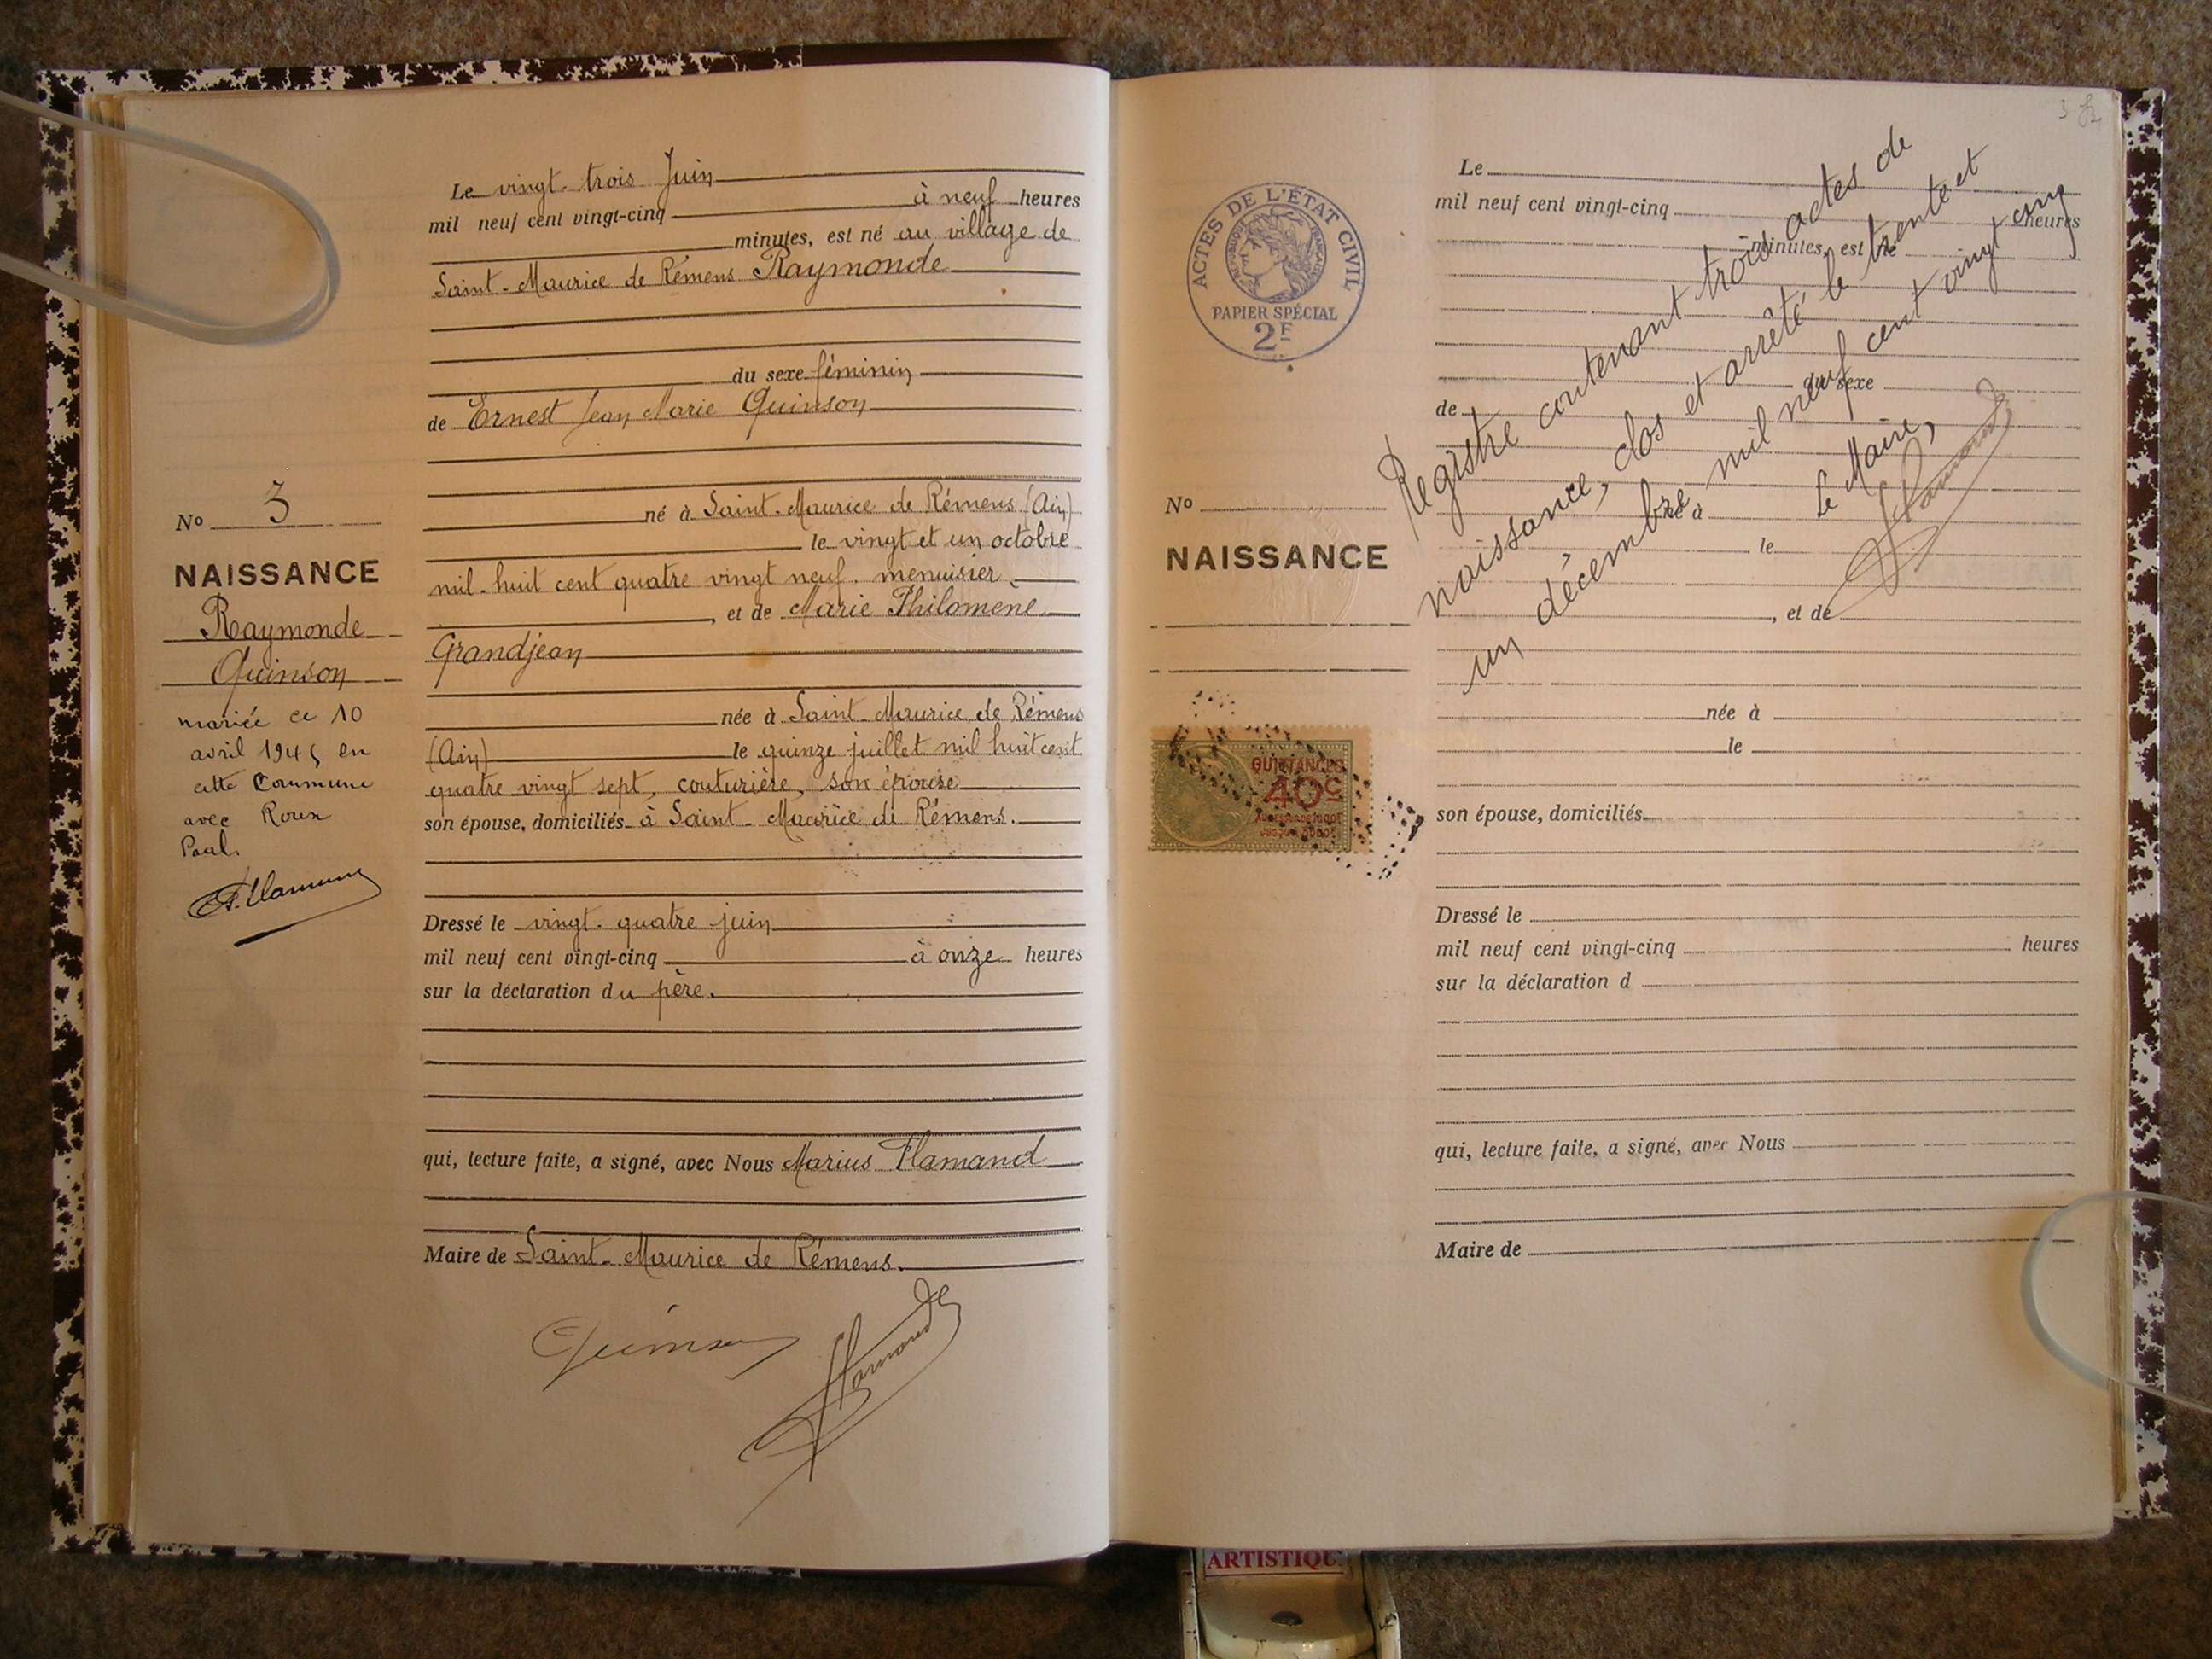 Le vingt-trois Juin
mil neuf cent vingt-cinq à neuf heures
minutes, est né au village de
Saint-Maurice de Rémens Raymonde
du sexe féminin
de Ernest Jean Marie Quinson
né à Saint-Maurice de Rémens (Ain)
le vingt et un octobre
mil-huit cent quatre vingt neuf, menuisier,
, et de Marie Philomène
Grandjean
née à Saint-Maurice de Rémens
(Ain) le quinze juillet mil huit cent
quatre vingt sept, couturière, son épouse
son épouse, domiciliés à Saint-Maurice de Rémens.
Dressé le vingt-quatre juin
mil neuf cent vingt-cinq à onze heures
sur la déclaration du père.
qui, lecture faite, a signé, avec Nous Marius Flamand
Maire de Saint-Maurice de Rémens.
Quinson
Flamand
No 3
NAISSANCE
Raymonde
Quinson
mariée ce 10
avril 1945 en
cette Commune
avec Roux
Paul.
Flamand
ACTES DE L'ÉTAT CIVIL
RÉPUBLIQUE FRANÇAISE
PAPIER SPÉCIAL
2F
No
NAISSANCE
QUITTANCES
40c
Le
mil neuf cent vingt-cinq heures
minutes, est né
du sexe
de
né à
le
, et de
née à
le
son épouse, domiciliés
Dressé le
mil neuf cent vingt-cinq heures
sur la déclaration d
qui, lecture faite, a signé, avec Nous
Maire de
Registre contenant trois actes de
naissance, clos et arrêté le trente et
un décembre mil neuf cent vingt cinq
Le Maire,
Flamand
3
ARTISTIQU